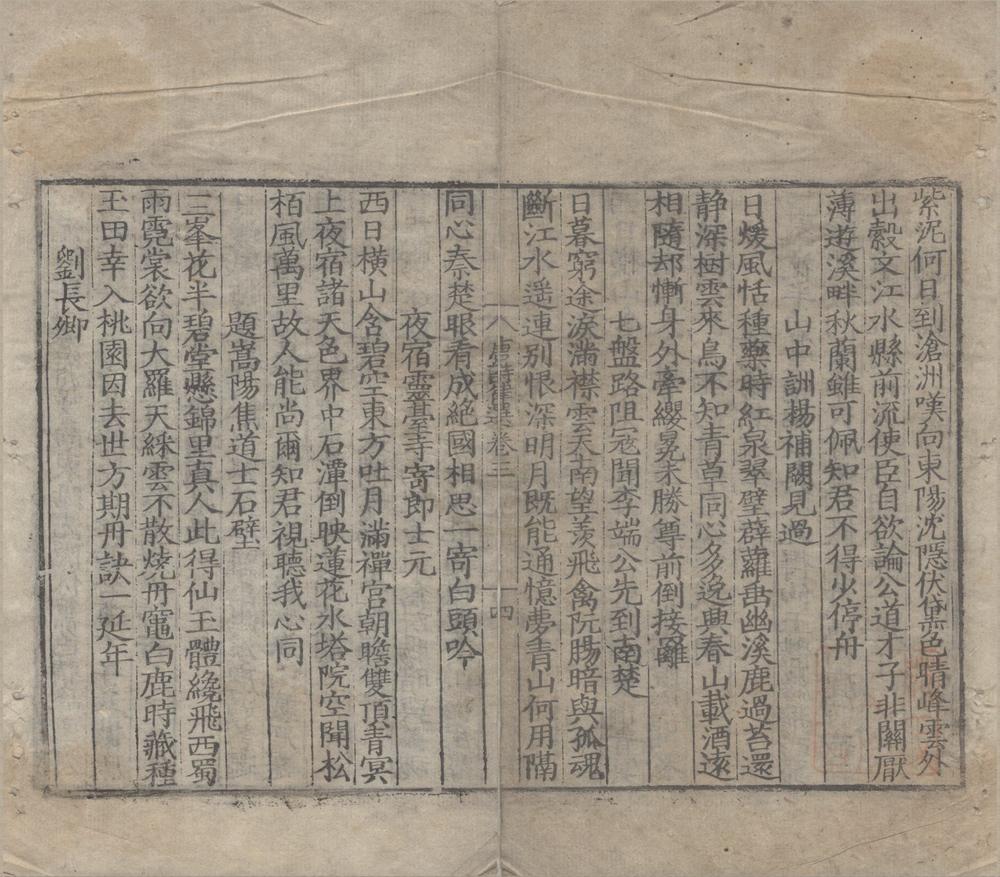 紫泥何日到滄洲嘆向東陽沈隱伏黛色晴峰雲外
出縠文江水縣前流使臣自欲論公道才子非關厭
薄遊溪畔秋蘭雖可佩知君不得少停舟
山中詶楊補闕見過
日煖風恬種藥時紅泉翠壁薜蘿垂幽溪鹿過苔還
静深樹雲來鳥不知青草同心多逸興春山載酒遠
相隨却慚身外牽纓冕未勝尊前倒接䍦
七盤路阻冦聞李端公先到南楚
日暮窮途淚滿襟雲天南望羡飛禽阮腸暗與孤魂
斷江水遥連别恨深明月旣能通憶夢青山何用隔
唐詩選卷三
十四
同心秦楚眼看成絶國相思一寄白頭吟
夜宿靈臺寺寄郎士元
西日横山含碧空東方吐月滿禪宫朝瞻雙頂青冥
上夜宿諸天色界中石潭倒映蓮花水塔院空聞松
栢風萬里故人能尚爾知君視聽我心同
題嵩陽焦道士石壁
三峯花半碧堂懸錦里真人此得仙玉體纔飛西蜀
雨霓裳欲向大羅天綵雲不散燒丹竈白鹿時藏種
玉田幸入桃園因去世方期丹訣一延年
劉長卿